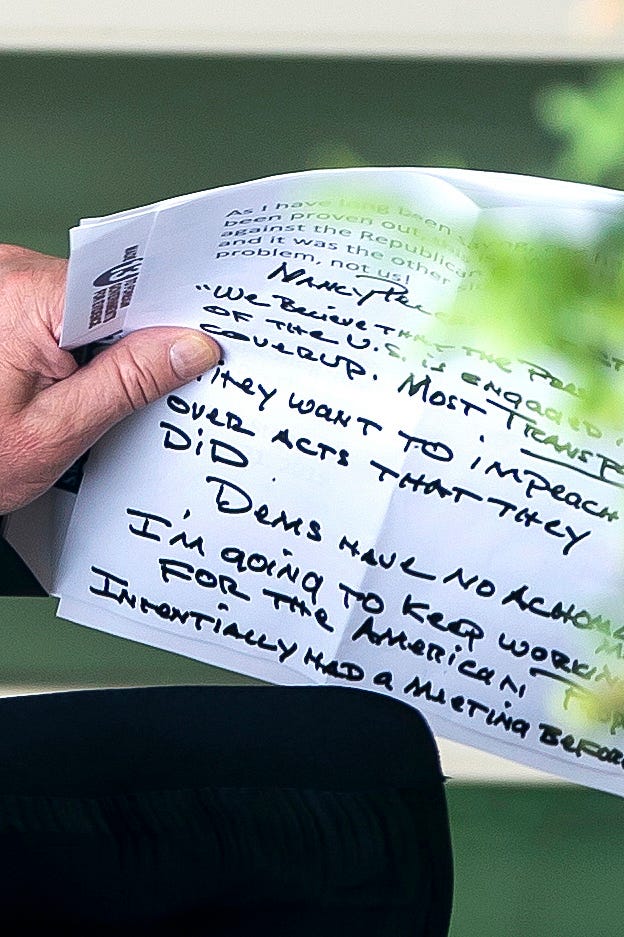 As I have long been
been proven out,
against the Republican
and it was the other
problem, not us!
NANCY
"WE BELIEVE THAT THE PRES
OF THE U.S. IS ENGAGED
COVERUP. MOST TRANSP
THEY WANT TO IMPEACH
OVER ACTS THAT THEY
DID
DEMS HAVE NO ACHOM
I'M GOING TO KEEP WORKIN
FOR THE AMERICAN
INTENTIALLY HAD A MEETING BEFORE